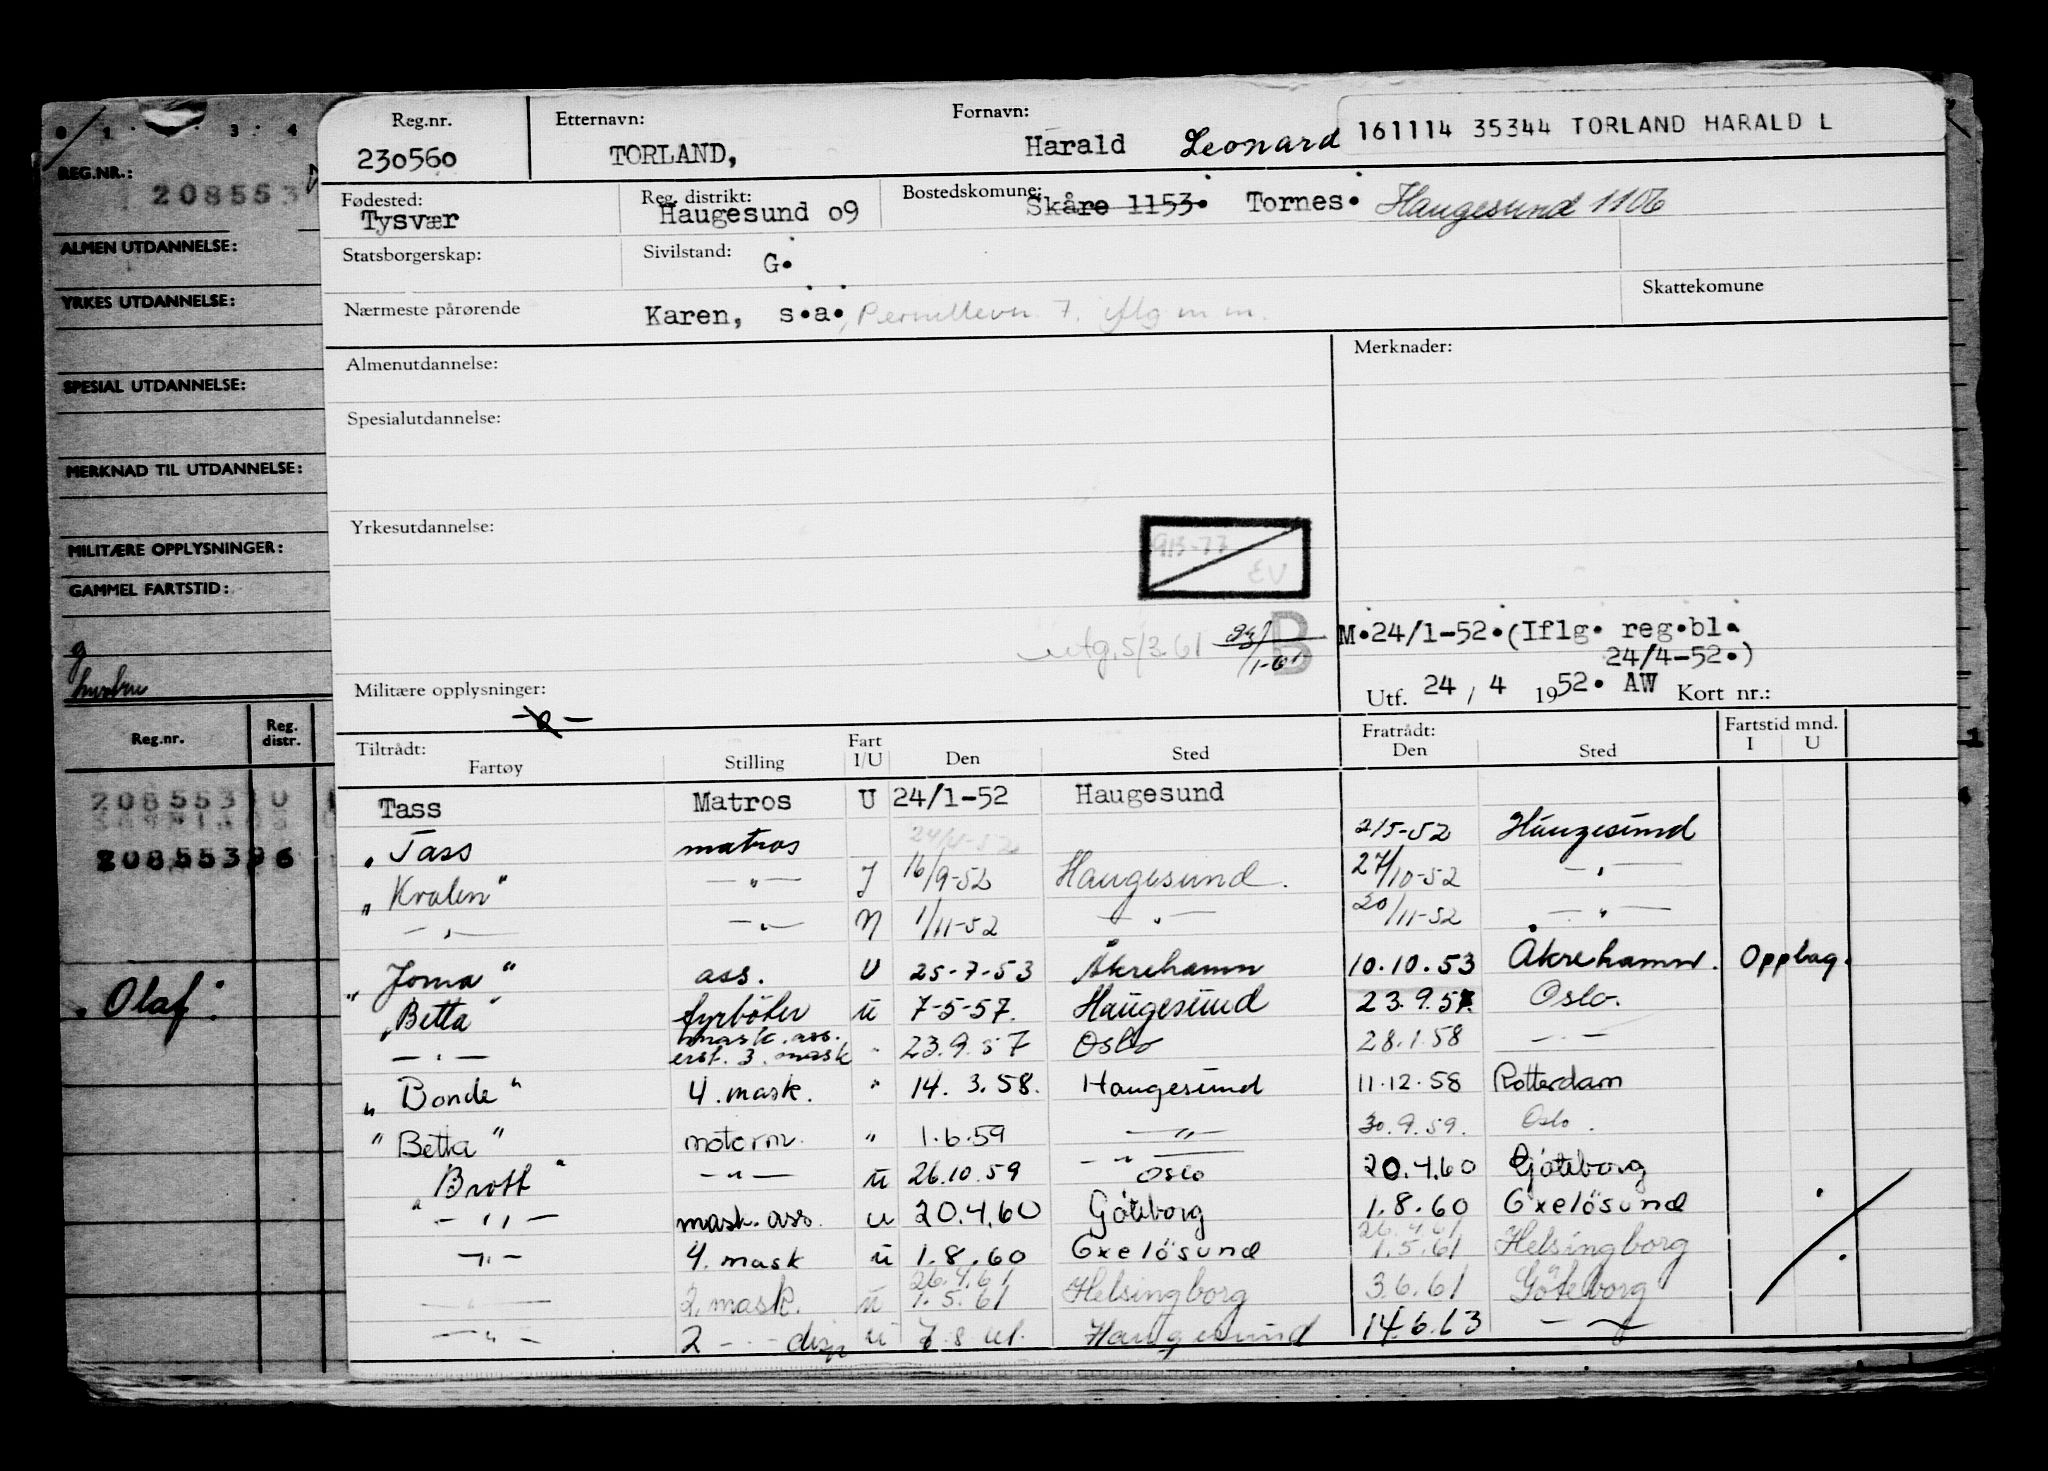 0 1 . 3 . 4
REG.NR.:
208553
ALMEN UTDANNELSE:
YRKES UTDANNELSE:
SPESIAL UTDANNELSE:
MERKNAD TIL UTDANNELSE:
MILITÆRE OPPLYSNINGER:
GAMMEL FARTSTID:
g
Reg.nr. Reg. distr.
208553 0
20855396
"Olaf"
Reg.nr. Etternavn: Fornavn:
230560 TORLAND, Harald Leonard 161114 35344 TORLAND HARALD L
Fødested: Reg. distrikt: Bostedskomune:
Tysvær Haugesund 09 Skåre 1153. Tornes. Haugesund 1106
Statsborgerskap: Sivilstand: G.
Skattekomune
Nærmeste pårørende Karen, s.a., 7. iflg m m.
Almenutdannelse: Merknader:
Spesialutdannelse:
Yrkesutdannelse:
913-77
EV
utg. 5/3.61 B
M.24/1-52.(Iflg. reg.bl.
24/4-52.)
Militære opplysninger: Utf. 24 / 4 1952. AW Kort nr.:
Tiltrådt: Fartøy Stilling Fart I/U Den Sted Fratrådt: Den Sted Fartstid mnd. I U
Tass Matros U 24/1-52 Haugesund
" Tass matros 2/5-52 Haugesund
" Kvalen" -"- I 16/9-52 Haugesund. 27/10-52 -"-
-"- -"- N 1/11-52 -"- 20/11-52 -"-
" Joma " ass. U 25-7-53 Åkrehamn 10.10.53 Åkrehamn. Oppbag.
"Betta" fyrbøter u 7-5-57. Haugesund 23.9.57. Oslo.
-"- mask. ass. erst. 3. mask " 23.9.57 Oslo 28.1.58 -"-
" Bonde " 4. mask. " 14. 3. 58. Haugesund 11.12.58 Rotterdam
" Betta " motorm. " 1.6.59 -"- 30.9.59. Oslo.
" Brott " -"- u 26.10.59 -"- Oslo 20.4.60 Gøteborg
-"- mask. ass. u 20.4.60 Göteborg 1.8.60 Oxelösund
-"- 4. mask u 1.8.60 Oxelösund 26.4.61 1.5.61 Helsingborg
-"- 2. mask. u 26.4.61 1.5.61 Helsingborg 3.6.61 Göteborg
-"- 2 -"- disp u Haugesund 14.6.63 -"-